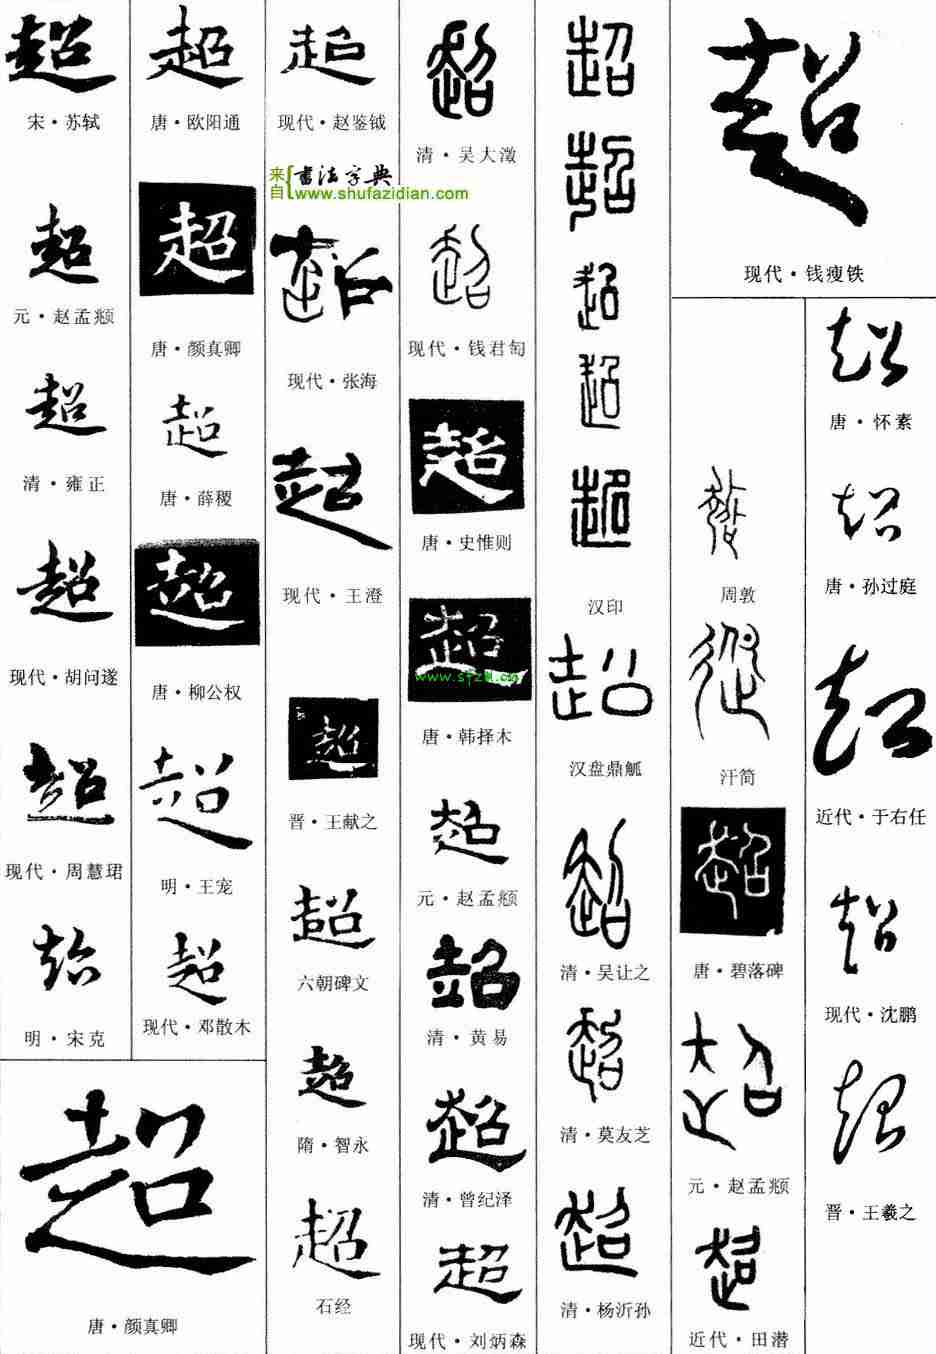 超
宋·苏轼
超
元·赵孟頫
超
清·雍正
超
现代·胡问遂
超
现代·周慧珺
超
明·宋克
超
唐·颜真卿
超
唐·欧阳通
超
唐·颜真卿
超
唐·薛稷
超
唐·柳公权
超
明·王宠
超
现代·邓散木
超
现代·赵鉴钺
来自{书法字典
www.shufazidian.com
超
现代·张海
超
现代·王澄
超
晋·王献之
超
六朝碑文
超
隋·智永
超
石经
超
清·吴大澂
超
现代·钱君匋
超
唐·史惟则
超
www.sfzd.cn
唐·韩择木
超
元·赵孟頫
超
清·黄易
超
清·曾纪泽
超
现代·刘炳森
超
超
超
超
超
汉印
超
汉盘鼎觚
超
清·吴让之
超
清·莫友芝
超
清·杨沂孙
超
现代·钱瘦铁
超
周敦
超
汗简
超
唐·碧落碑
超
元·赵孟頫
超
近代·田潜
超
唐·怀素
超
唐·孙过庭
超
近代·于右任
超
现代·沈鹏
超
晋·王羲之